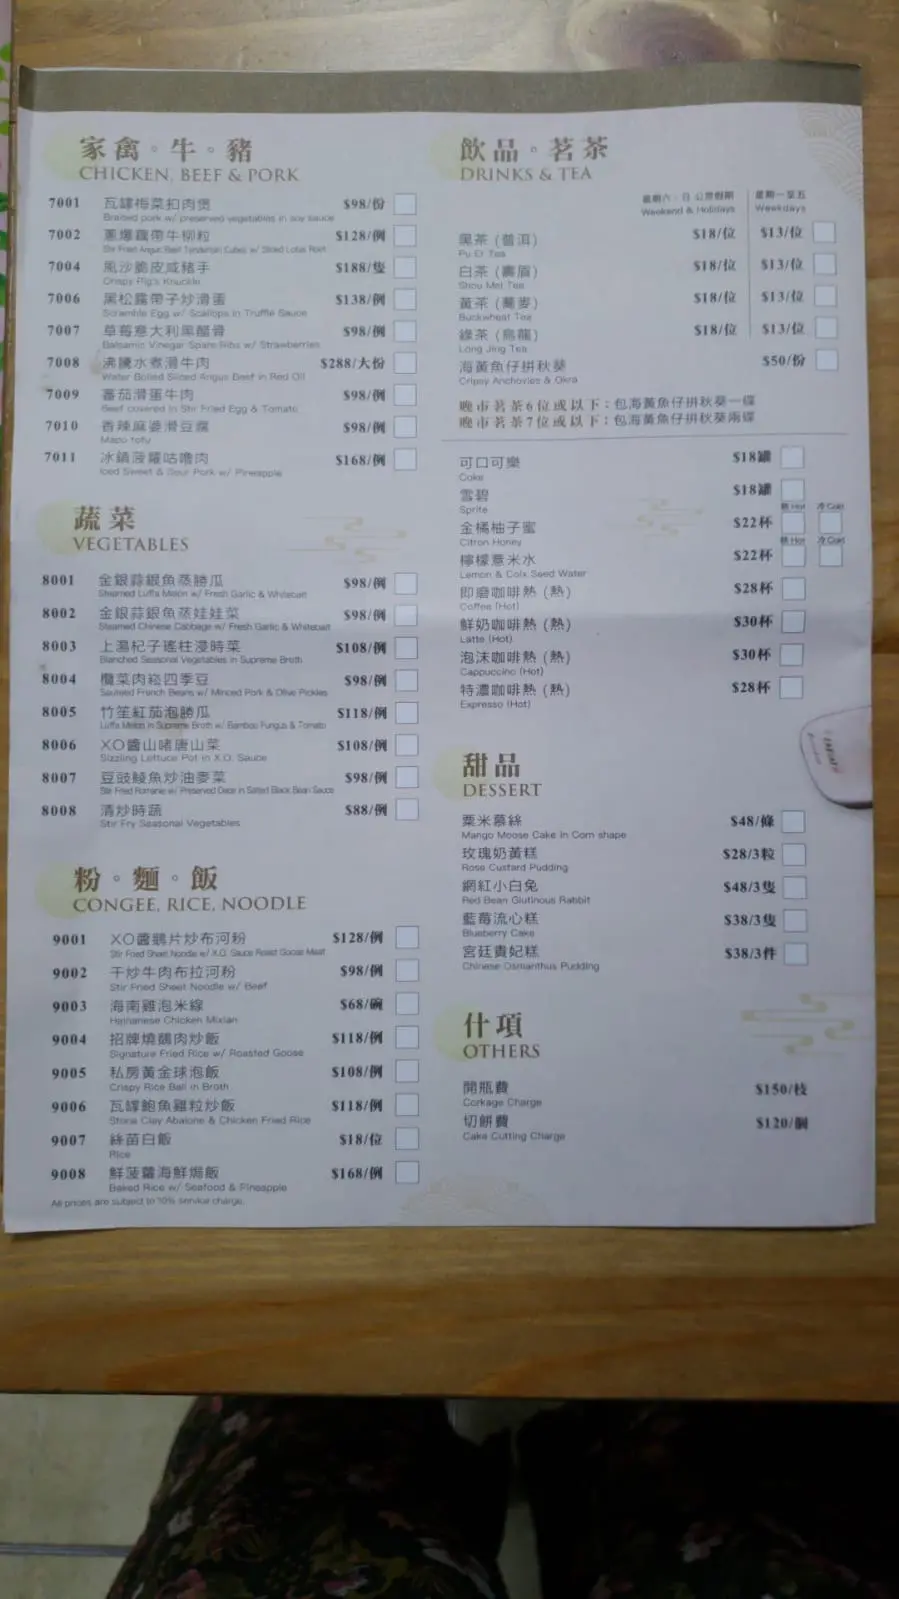 家禽。牛。豬
CHICKEN, BEEF & PORK
7001 瓦罉梅菜扣肉煲 $98/份
Braised pork w/ preserved vegetables in soy sauce
7002 蔥爆藕帶牛柳粒 $128/例
Stir Fried Angus Beef Tenderloin Cubes w/ Sliced Lotus Root
7004 風沙脆皮咸豬手 $188/隻
Crispy Pig's Knuckle
7006 黑松露帶子炒滑蛋 $138/例
Scramble Egg w/ Scallops in Truffle Sauce
7007 草莓意大利黑醋骨 $98/例
Balsamic Vinegar Spare Ribs w/ Strawberries
7008 沸騰水煮滑牛肉 $288/大份
Water Boiled Sliced Angus Beef in Red Oil
7009 蕃茄滑蛋牛肉 $98/例
Beef covered in Stir Fried Egg & Tomato
7010 香辣麻婆滑豆腐 $98/例
Mapo tofu
7011 冰鎮菠蘿咕嚕肉 $168/例
Iced Sweet & Sour Pork w/ Pineapple
蔬菜
VEGETABLES
8001 金銀蒜銀魚蒸勝瓜 $98/例
Steamed Luffa Melon w/ Fresh Garlic & Whitebait
8002 金銀蒜銀魚蒸娃娃菜 $98/例
Steamed Chinese Cabbage w/ Fresh Garlic & Whitebait
8003 上湯杞子瑤柱浸時菜 $108/例
Blanched Seasonal Vegetables in Supreme Broth
8004 欖菜肉崧四季豆 $98/例
Sauteed French Beans w/ Minced Pork & Olive Pickles
8005 竹笙紅茄泡勝瓜 $118/例
Luffa Melon in Supreme Broth w/ Bamboo Fungus & Tomato
8006 XO醬山啫唐山菜 $108/例
Sizzling Lettuce Pot in X.O. Sauce
8007 豆豉鯪魚炒油麥菜 $98/例
Stir Fried Romaine w/ Preserved Dace in Salted Black Bean Sauce
8008 清炒時蔬 $88/例
Stir Fry Seasonal Vegetables
粉。麵。飯
CONGEE, RICE, NOODLE
9001 XO醬鵝片炒布河粉 $128/例
Stir Fried Sheet Noodle w/ X.O. Sauce Roast Goose Meat
9002 干炒牛肉布拉河粉 $98/例
Stir Fried Sheet Noodle w/ Beef
9003 海南雞泡米線 $68/碗
Hainanese Chicken Mixian
9004 招牌燒鵝肉炒飯 $118/例
Signature Fried Rice w/ Roasted Goose
9005 私房黃金球泡飯 $108/例
Crispy Rice Ball in Broth
9006 瓦罉鮑魚雞粒炒飯 $118/例
Stone Clay Abalone & Chicken Fried Rice
9007 絲苗白飯 $18/位
Rice
9008 鮮菠蘿海鮮焗飯 $168/例
Baked Rice w/ Seafood & Pineapple
All prices are subject to 10% service charge.
飲品。茗茶
DRINKS & TEA
星期六、日 公眾假期 星期一至五
Weekend & Holidays Weekdays
黑茶 (普洱) $18/位 $13/位
Pu Er Tea
白茶 (壽眉) $18/位 $13/位
Shou Mei Tea
黃茶 (蕎麥) $18/位 $13/位
Buckwheat Tea
綠茶 (烏龍) $18/位 $13/位
Long Jing Tea
海黃魚仔拼秋葵 $50/份
Cripsy Anchovies & Okra
晚市茗茶6位或以下：包海黃魚仔拼秋葵一碟
晚市茗茶7位或以上：包海黃魚仔拼秋葵兩碟
可口可樂 $18罐
Coke
雪碧 $18罐
Sprite
熱 Hot 冷 Cold
金橘柚子蜜 $22杯
Citron Honey
熱 Hot 冷 Cold
檸檬薏米水 $22杯
Lemon & Coix Seed Water
即磨咖啡熱 (熱) $28杯
Coffee (Hot)
鮮奶咖啡熱 (熱) $30杯
Latte (Hot)
泡沫咖啡熱 (熱) $30杯
Cappuccino (Hot)
特濃咖啡熱 (熱) $28杯
Expresso (Hot)
甜品
DESSERT
粟米慕絲 $48/條
Mango Moose Cake In Corn shape
玫瑰奶黃糕 $28/3粒
Rose Custard Pudding
網紅小白兔 $48/3隻
Red Bean Glutinous Rabbit
藍莓流心糕 $38/3隻
Blueberry Cake
宮廷貴妃糕 $38/3件
Chinese Osmanthus Pudding
什項
OTHERS
開瓶費 $150/枝
Corkage Charge
切餅費 $120/個
Cake Cutting Charge